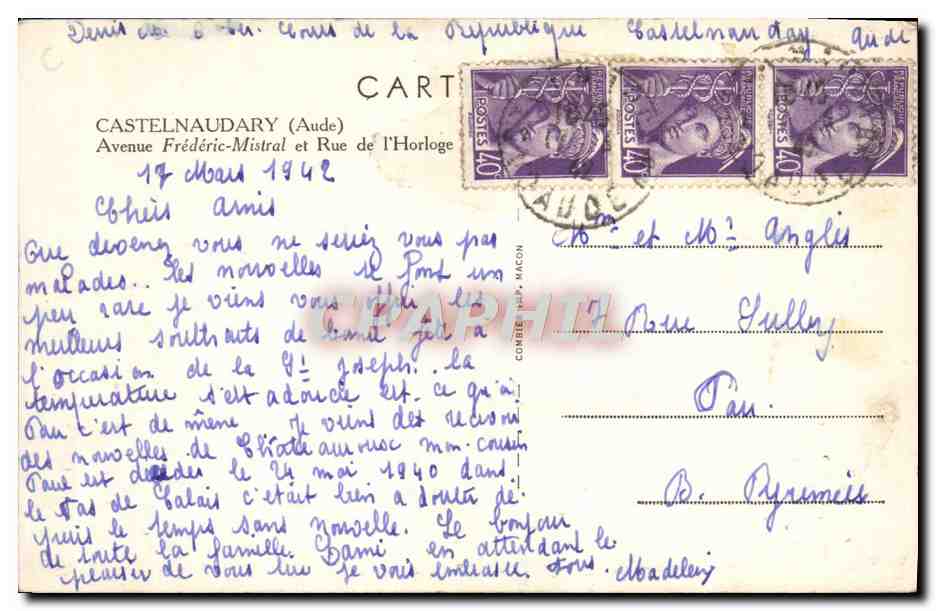 Cours de la Republique Castelnaudary Aude
CARTE
CASTELNAUDARY (Aude)
Avenue Frédéric-Mistral et Rue de l'Horloge
REPUBLIQUE FRANCAISE POSTES 40c
REPUBLIQUE FRANCAISE POSTES 40c
REPUBLIQUE FRANCAISE POSTES 40c
AUDE
17 Mars 1942
Chers Amis
Que devenez vous ne seriez vous pas
malades.. les nouvelles se font un
peu rare je viens vous offrir les
meilleurs souhaits de bonne fête a
l'occasion de la St Joseph.. la
temperature s'est adoucie est-ce qu'à
Pau c'est de même. Je viens de recevoir
des nouvelles de Chateauroux mon cousin
Paul est decedes le 24 mai 1940 dans
le Pas de Calais c'était bien a douter de
puis le temps sans nouvelle. Le bonjour
de toute la famille. en attendant le
plaisir de vous lire je vous embrasse Tous. Madeleine
COMBIER IMP. MACON
Mme et Mr Anglès
7 Rue Sully
Pau.
B. Pyrénées
CPAPHIL